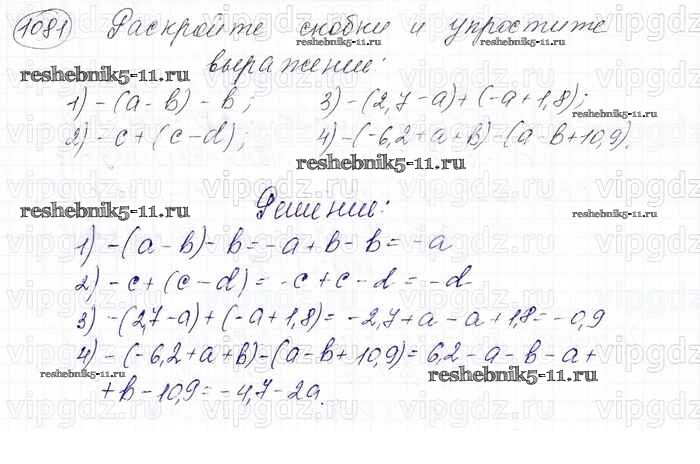 1081 Раскройте скобки и упростите
reshebnik5-11.ru
выражение:
reshebnik5-11.ru
1) -(a-b)-b; 3) -(2,7-a)+(-a+1,8);
2) -c+(c-d); 4) -(-6,2+a+b)-(a-b+10,9).
reshebnik5-11.ru
reshebnik5-11.ru
Решение:
reshebnik5-11.ru
1) -(a-b)-b=-a+b-b=-a
2) -c+(c-d)=-c+c-d=-d
3) -(2,7-a)+(-a+1,8)=-2,7+a-a+1,8=-0,9
4) -(-6,2+a+b)-(a-b+10,9)=6,2-a-b-a+
reshebnik5-11.ru
reshebnik5-11.ru
+b-10,9=-4,7-2a.
vipgdz.ru